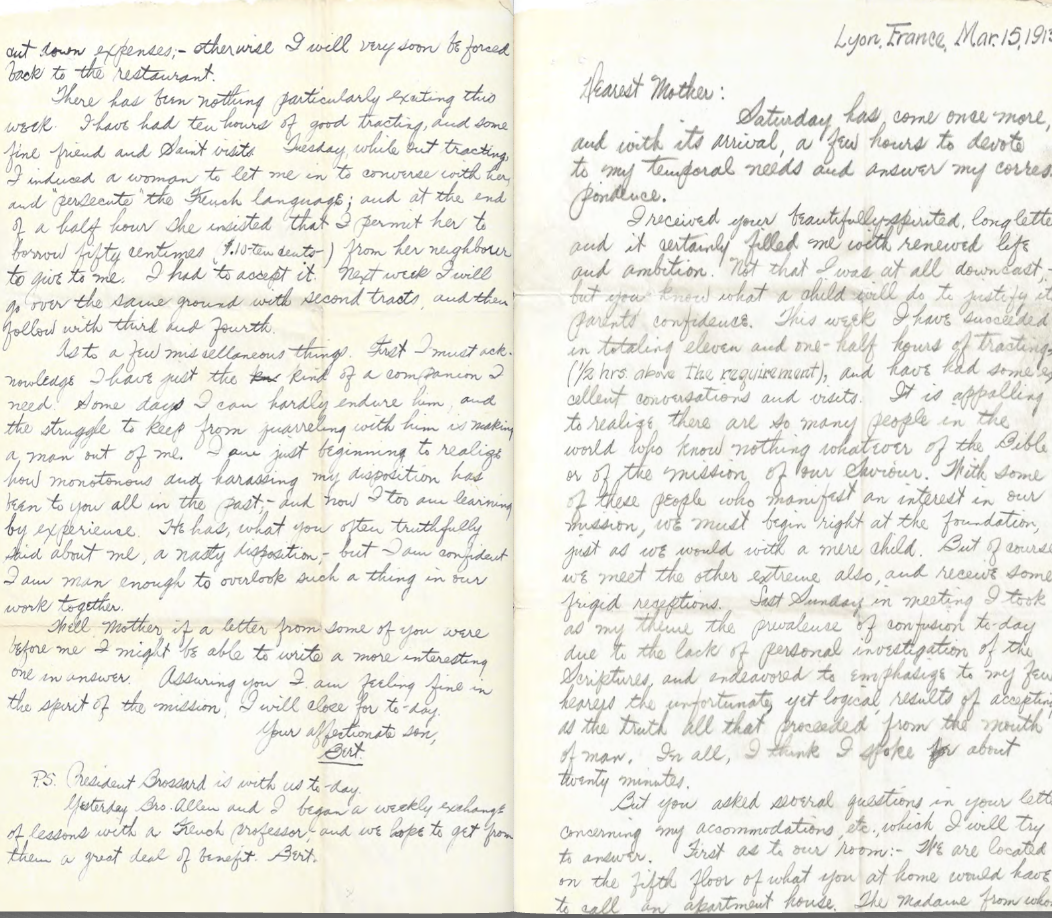 cut down expenses;- otherwise I will very soon be forced
back to the restaurant.
There has been nothing particularly exciting this
week. I have had ten hours of good tracting, and some
fine friend and Saint visits. Tuesday, while out tracting,
I induced a woman to let me in to converse with her,
and "persecute" the French language; and at the end
of a half hour she insisted that I permit her to
borrow fifty centimes ($.10-ten cents-) from her neighbour
to give to me. I had to accept it. Next week I will
go over the same ground with second tracts, and then
follow with third and fourth.
As to a few miscellaneous things. First I must ack-
nowledge I have just the kind of a companion I
need. Some days I can hardly endure him, and
the struggle to keep from quarreling with him is making
a man out of me. I am just beginning to realize
how monotonous and harassing my disposition has
been to you all in the past,- and now I too am learning
by experience. He has, what you often truthfully
said about me, a natty disposition,- but I am confident
I am man enough to overlook such a thing in our
work together.
Well Mother if a letter from some of you were
before me I might be able to write a more interesting
one in answer. Assuring you I am feeling fine in
the spirit of the mission, I will close for to-day.
Your affectionate son,
Bert.
P.S. President Brossard is with us to-day.
Yesterday Bro. Allen and I began a weekly exchange
of lessons with a French professor and we hope to get from
them a great deal of benefit. Bert.
Lyon, France, Mar. 15, 191
Dearest Mother:
Saturday has come once more,
and with its arrival, a few hours to devote
to my temporal needs and answer my corres-
pondence.
I received your beautifully-spirited, long lette
and it certainly filled me with renewed life
and ambition. Not that I was at all downcast,-
but you know what a child will do to justify it
parents' confidence. This week I have succeeded
in totaling eleven and one-half hours of tracting-
(1/2 hrs. above the requirement), and have had some ex
cellent conversations and visits. It is appalling
to realize there are so many people in the
world who know nothing whatever of the Bible
or of the mission of our Saviour. With some
of these people who manifest an interest in our
mission, we must begin right at the foundation,
just as we would with a mere child. But of course
we meet the other extreme also, and receive some
frigid receptions. Last Sunday in meeting I took
as my theme the prevalence of confusion to-day
due to the lack of personal investigation of the
Scriptures, and endeavored to emphasize to my few
hearers the unfortunate, yet logical, results of accepting
as the truth all that proceeded from the mouth
of man. In all, I think I spoke for about
twenty minutes.
But you asked several questions in your lett
concerning my accommodations, etc., which I will try
to answer. First as to our room:- We are located
on the fifth floor of what you at home would have
to call an apartment house. The madame from who